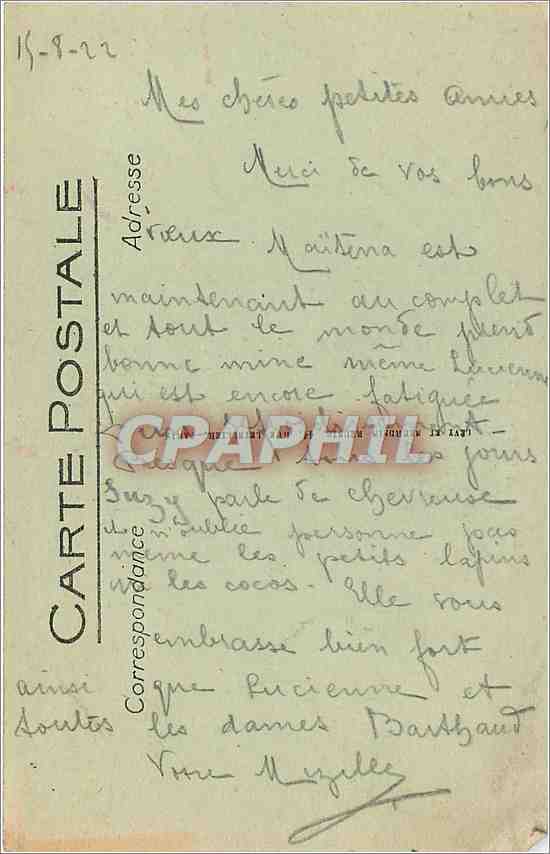 15-8-22
Mes chères petites amies
Merci de vos bons
vœux Maïtena est
maintenant au complet
et tout le monde prend
bonne mine même Lucienne
qui est encore fatiguée
CPARAMA
LEVY ET NEURDEIN REUNIS, 44, RUE LETELLIER, PARIS
presque tous les jours
Suzy parle de Chevreuse
et n'oublie personne pas
même les petits lapins
ni les cocos. Elle vous
embrasse bien fort
ainsi que Lucienne et
toutes les dames Barthaud
Votre Mizelle
CARTE POSTALE
Correspondance
Adresse